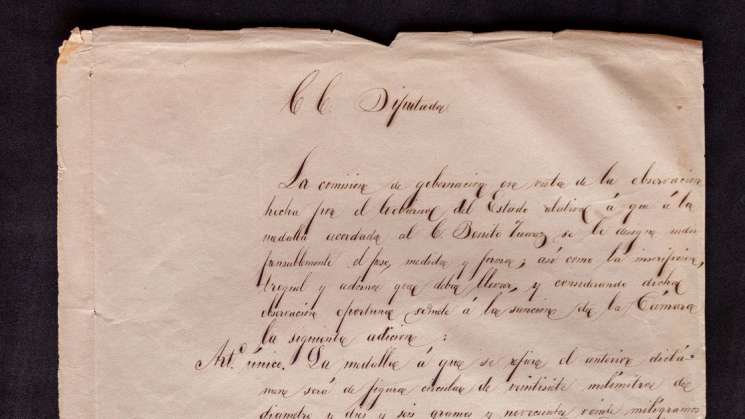 C C. Diputados
La comision de gobernacion en vista de la observacion
hecha por el Gobierno del Estado relativa á que á la
medalla acordada al C. Benito Juarez se le designe indis
pensablemente el peso, medida y forma; asi como la inscripcion,
troquel y adorno que deba llevar, y considerando dicha
observacion oportuna somete á la sancion de la Cámara
la siguiente adicion:
Art.º único. La medalla á que se refiere el anterior dictá-
men será de figura circular de veintisiete milímetros de
diametro y diez y seis gramos y novecientos veinte miligramos